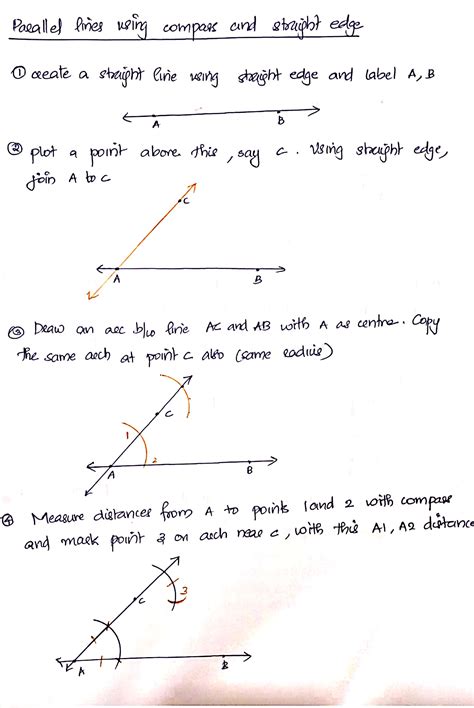 Parallel lines using compass and straight edge
① create a straight line using straight edge and label A, B
A B
② plot a point above this, say C. Using straight edge,
join A to C
C
A B
③ Draw an arc b/w line AC and AB with A as centre. Copy
the same arch at point C also (same radius)
C
1
2
A B
④ Measure distances from A to points 1 and 2 with compass
and mark point 3 on arch near C, with this A1, A2 distance
C 3
A B